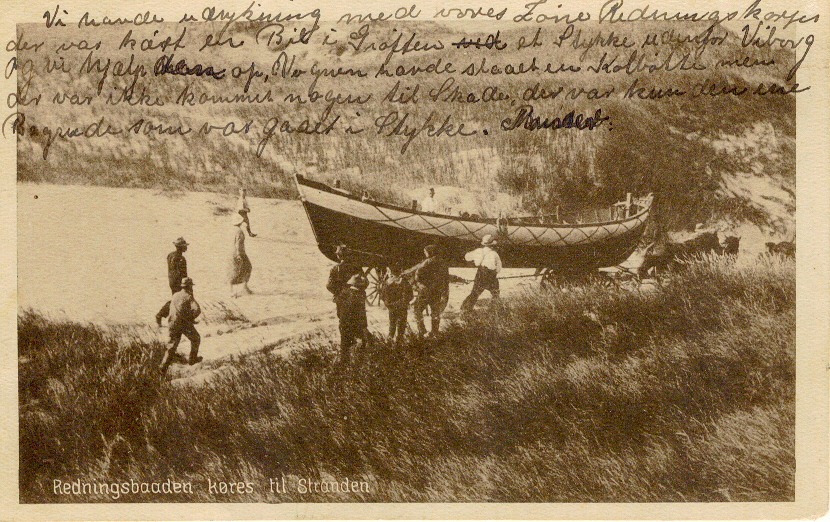 Vi havde udrykning med vores Zone Redningskorps
der var køst en Bil i Grøften ved et Stykke udenfor Viborg
og vi hjalp ham op, Vognen havde slaaet en Kolbøtte men
der var ikke kommet nogen til Skade, der var kun den ene
Bagrude som var gaaet i Stykke.
Redningsbaaden køres til Stranden